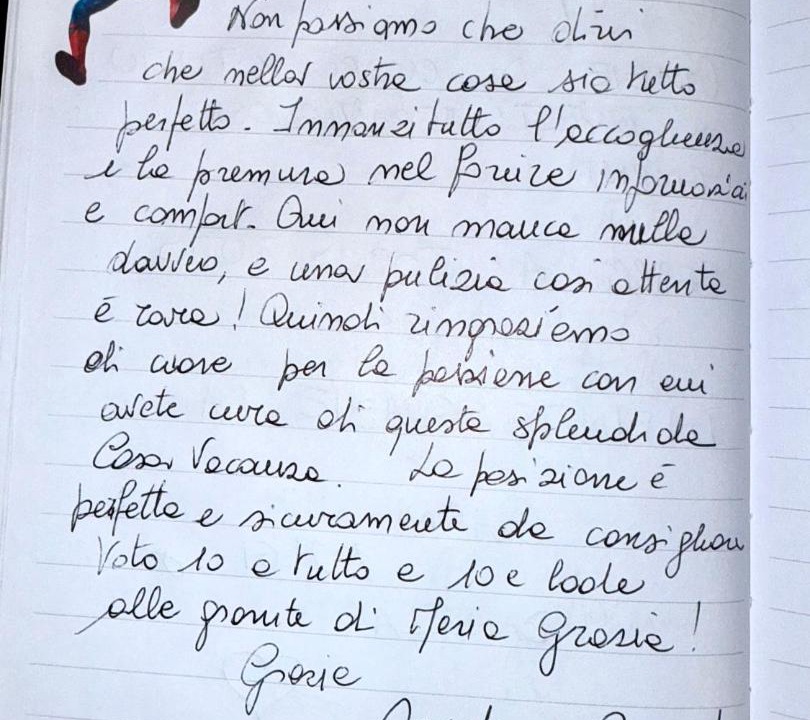 Non possiamo che dirvi
che nella vostra casa sia tutto
perfetto. Innanzitutto l'accoglienza
e la premura nel fornire informaz
e comfort. Qui non manca nulla
davvero, e una pulizia così attenta
è rara! Quindi ringraziamo
di cuore per la passione con cui
avete cura di questa splendida
Casa Vacanza. La posizione è
perfetta e sicuramente da consigliare
Voto 10 a tutto e 10 e lode
alle granite di Maria Grazia!
Grazie